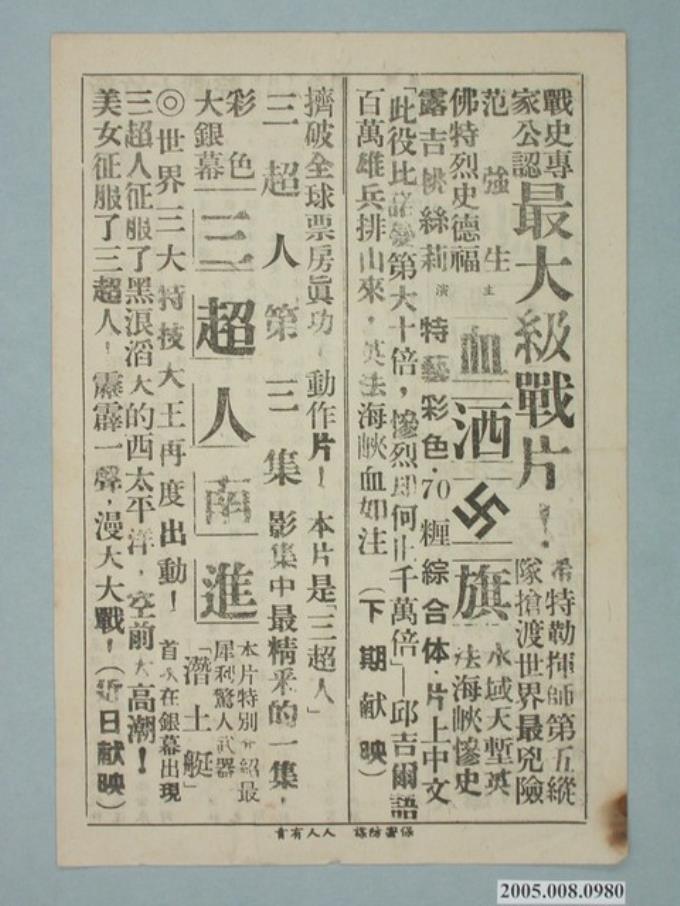 戰史專家公認
最大級戰片！
希特勒揮師第五縱隊搶渡世界最兇險水域天塹英法海峽慘史
范強生
佛特烈史德福
露吉絲莉
主演
血洒卐旗
特藝彩色·70糎綜合体·片上中文
「此役比諾曼第大十倍，慘烈即何止千萬倍」—邱吉爾語
百萬雄兵排山來，英法海峽血如注（下期献映）
擠破全球票房眞功！動作片！本片是「三超人」
三超人第三集影集中最精釆的一集，
彩色大銀幕
三超人南進
本片特別介紹最犀利驚人武器
「潛土艇」
首次在銀幕出現
◎世界三大特技大王再度出動！
三超人征服了黑浪滔天的西太平洋，空前大高潮！
美女征服了三超人！霹靂一聲，漫天大戰！（近日献映）
保密防諜 人人有責
2005.008.0980